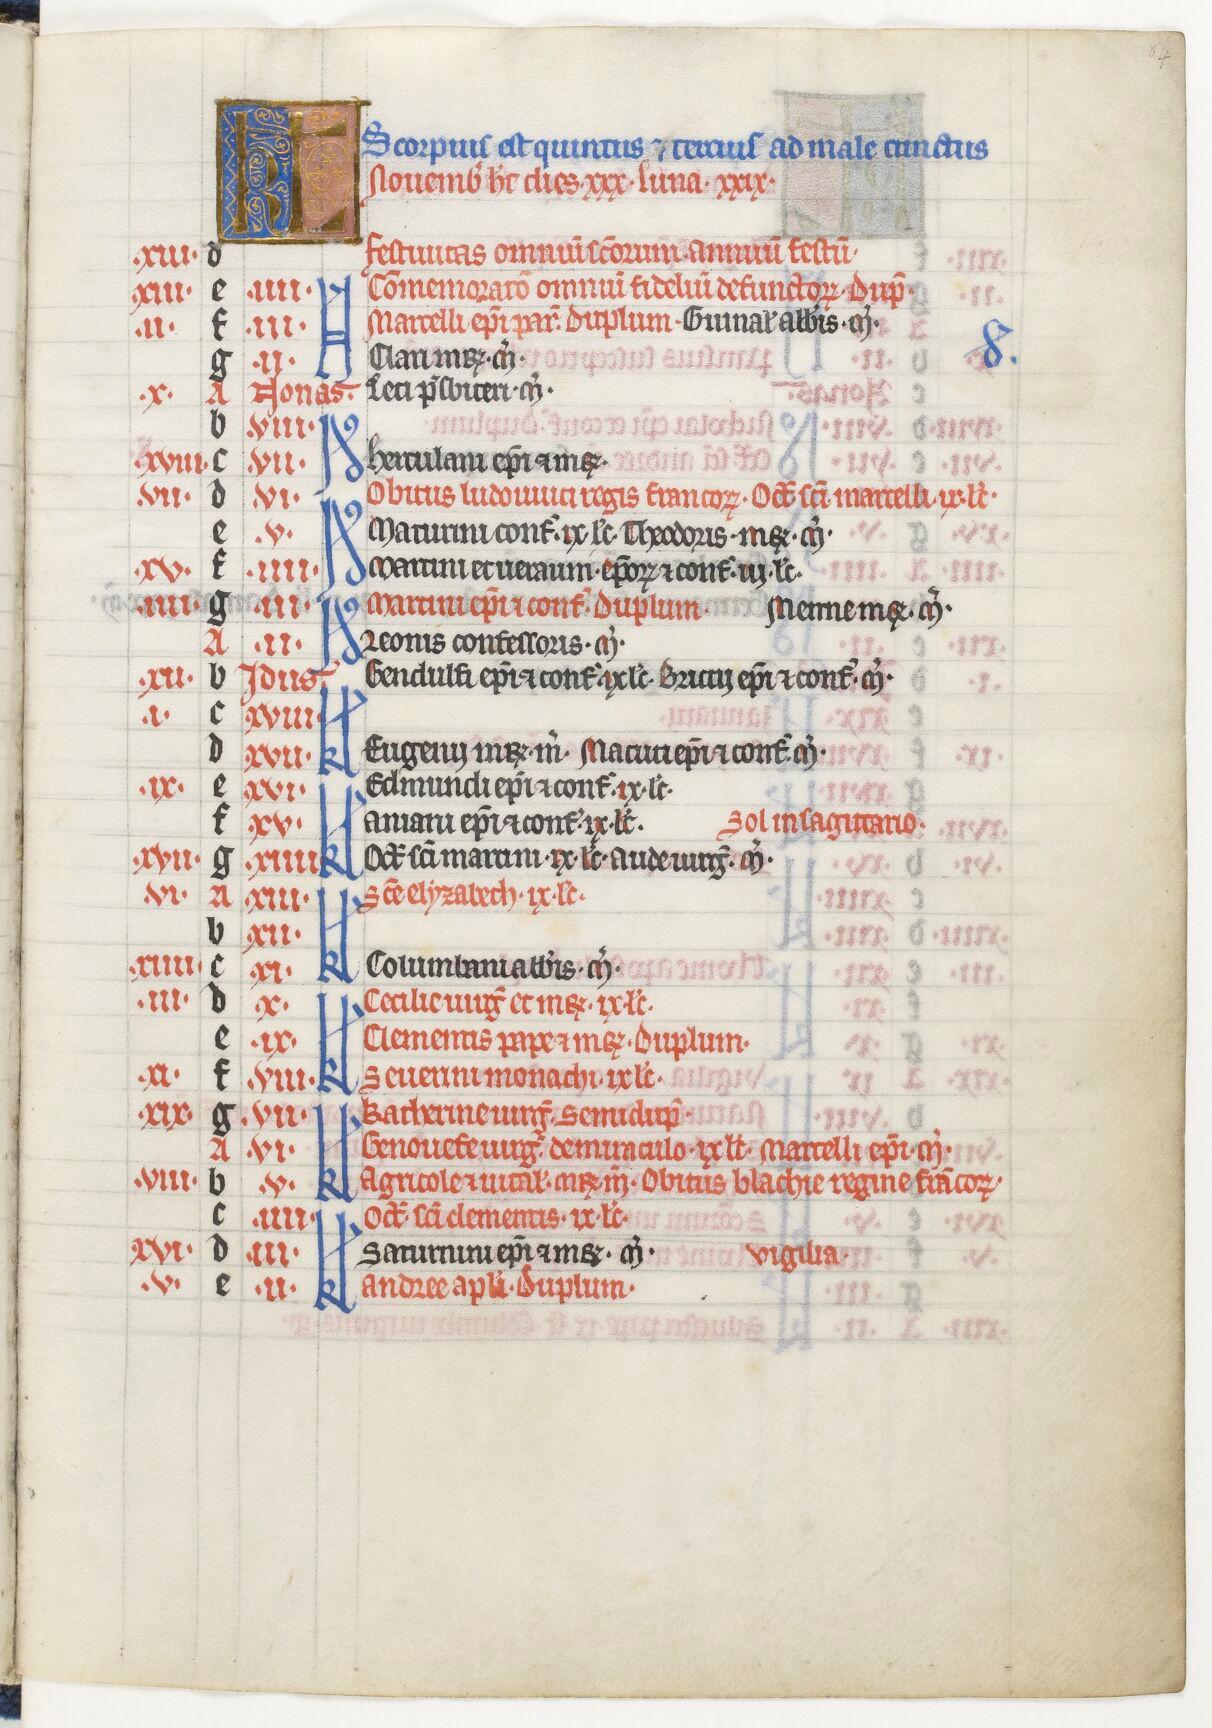 KL Scorpius est quintus ⁊ tercius ad male cunctus
Nouemb̾ h̾t dies·xxx·luna·xxix·
·xiii· d Festiuitas omniũ sc̃orum·Annuũ festũ·
·xiii· e ·iiii· N Cõmemoratõ omniũ fideliũ defunctoꝝ·Dup̃·
·ii· f ·iii· Marcelli ep̃i par̾·duplum·Guinal̾ ab̾bis·m̃·
g ·ii· N Clari mr̃·m̃·
·x· A Nonas· Leti p̃sbiteri·m̃·
b viii· N
·xviii· c vii· Herculani ep̃i ⁊ mr̃·
vii· d vi· Obitus ludouuici regis francoꝝ·Oct̃ sc̃i marcelli·ix·lc̃·
e ·v· N Maturini conf̃·ix·lc̃·Theodoris·mr̃·m̃·
·xv· f ·iiii· Martini et uerauni·ep̃oꝝ ⁊ conf̃·iij·lc̃·
·iiii· g ·iii· N Martini ep̃i ⁊ conf̃·Duplum· Menne mr̃·m̃·
A ·ii· Leonis confessoris·m̃·
·xii· b Idus Gendulfi ep̃i ⁊ conf̃·ix lc̃·Bricij ep̃i ⁊ conf̃·m̃·
·i· c xviii· KL
d xvii· Eugenij mr̃·m̃· Macuti ep̃i ⁊ conf̃·m̃·
·ix· e xvi· KL Edmundi ep̃i ⁊ conf̃·ix·lc̃·
f xv· Aniani ep̃i ⁊ conf̃·ix·lc̃· Sol in sagittario·
·xvii· g xiiii KL Oct̃ sc̃i martini·ix·lc̃·Aude uirg̃·m̃·
vi· A xiii· Sc̃e elyzabech·ix·lc̃·
b xii·
·xiiii· c xi· KL Columbani ab̾bis·m̃·
·iii· d x· Cecilie uirg̃ et mr̃·ix·lc̃·
e ·ix· KL Clementis pape ⁊ mr̃·Duplum·
·xi· f viii· Seuerini monachi·ix lc̃·
·xix· g ·vii· KL Katherine uirg̃·Semidup̃·
A ·vi· Genouefe uirg̃·de miraculo·ix lc̃· Marcelli ep̃i·m̃·
·viii· b ·v· KL Agricole ⁊ uital̾·mr̃ m̃·Obitus blachie regine francoꝝ·
c ·iiii· Oct̃·sc̃i clementis·ix·lc̃·
·xvi· d ·iii· KL Saturnini ep̃i ⁊ mr̃·m̃· Vigilia·
·v· e ·ii· Andree apl̃i·Duplum·